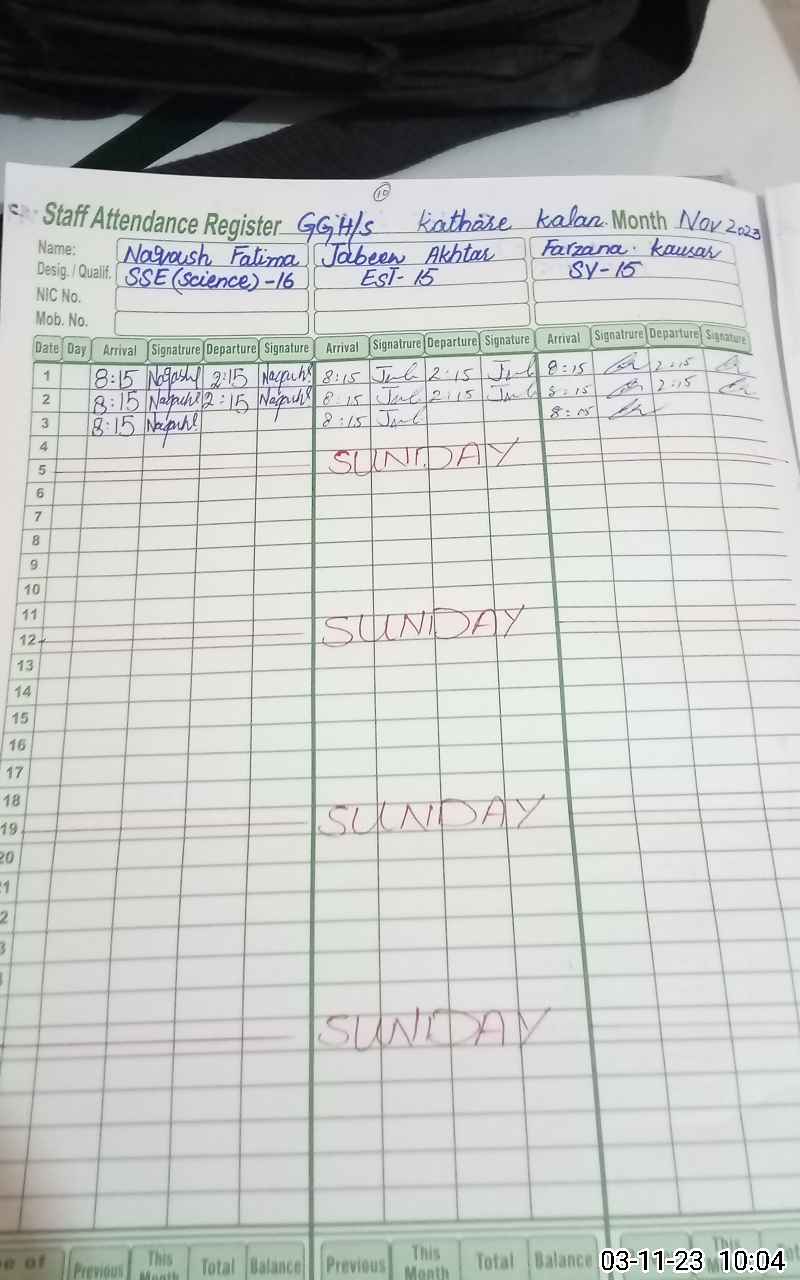 10
Staff Attendance Register GGH/s kathare kalan Month Nov 2023
Name: Naqoush Fatima Jabeen Akhtar Farzana kausar
Desig. / Qualif. SSE (science) -16 EST- 15 SV-15
NIC No.
Mob. No.
Date Day Arrival Signatrure Departure Signature Arrival Signatrure Departure Signature Arrival Signatrure Departure Signature
1 8:15 2:15 8:15 2:15 8:15 2:15
2 8:15 2:15 8:15 2:15 8:15 2:15
3 8:15 8:15 8:15
4
5 SUNDAY
6
7
8
9
10
11
12 SUNDAY
13
14
15
16
17
18
19 SUNDAY
20
SUNDAY
Previous This Month Total Balance Previous This Month Total Balance This
03-11-23 10:04